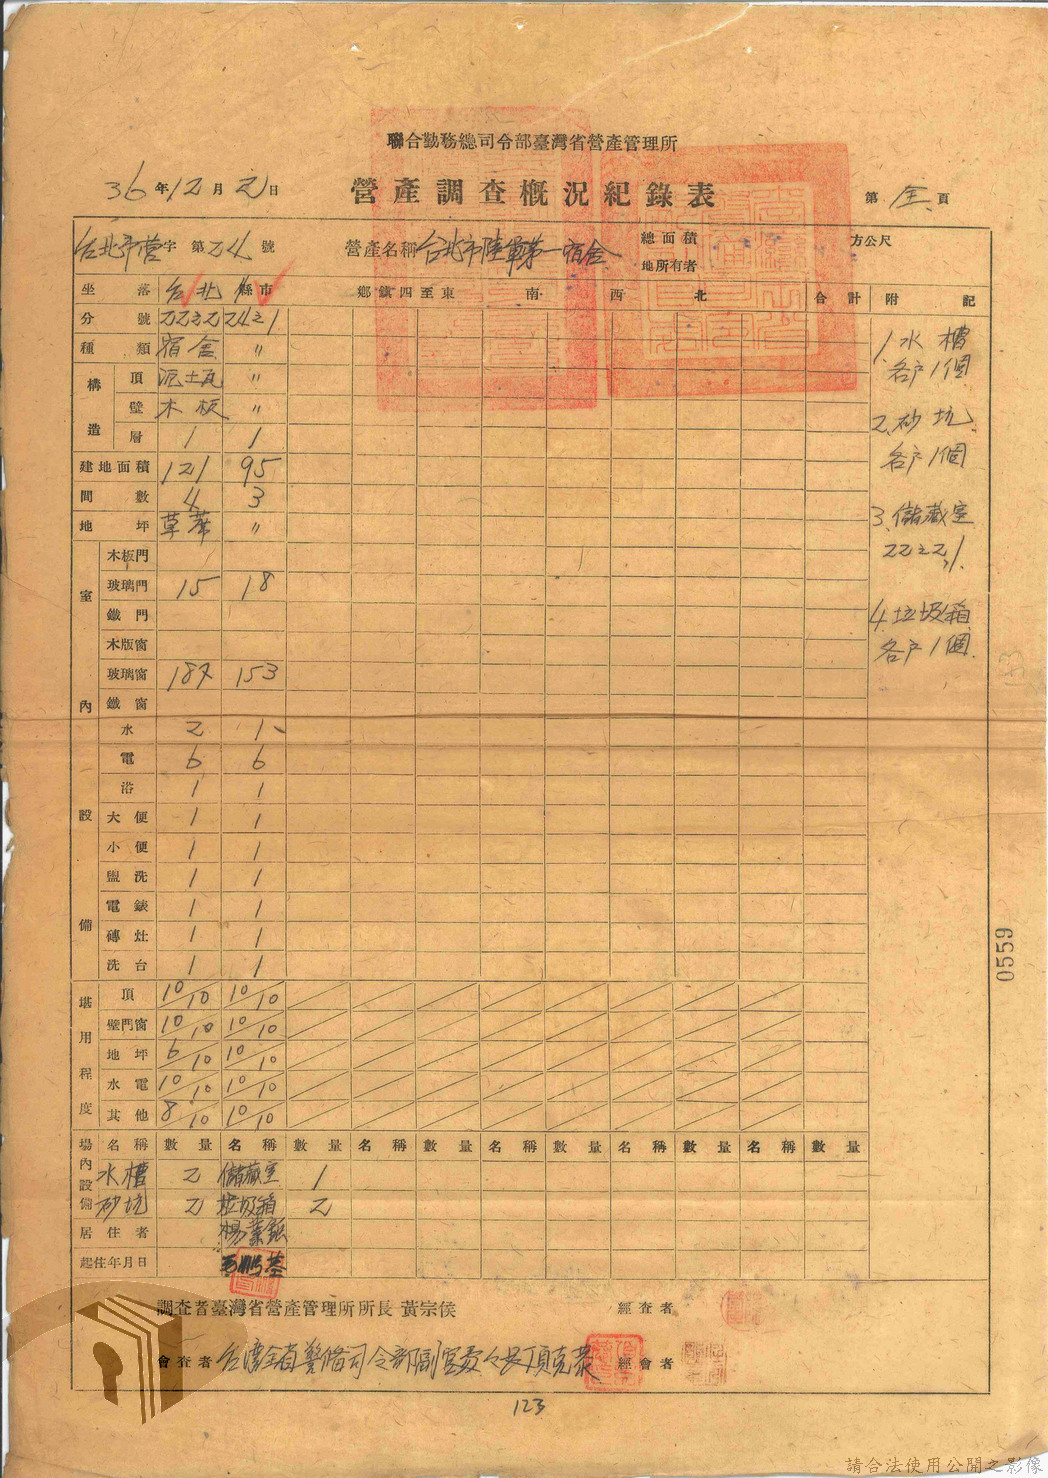 聯合勤務總司令部臺灣省營產管理所
36年12月2日 營產調查概況紀錄表 第全頁
台北市營字第24號 營產名稱 台北市陸軍第一宿舍 總面積 方公尺
地所有者
坐落 台北縣市 鄉鎮四至東 南 西 北 合計 附記
分號 22之2 24之1
種類 宿舍 〃
構造 頂 泥土瓦 〃
壁 木板 〃
層 1 1
建地面積 121 95
間數 4 3
地坪 草蓆 〃
室內設備
木板門
玻璃門 15 18
鐵門
木版窗
玻璃窗 187 153
鐵窗
水 2 1
電 6 6
浴 1 1
大便 1 1
小便 1 1
盥洗 1 1
電錶 1 1
磚灶 1 1
洗台 1 1
堪用程度
頂 10/10 10/10
壁門窗 10/10 10/10
地坪 6/10 10/10
水電 10/10 10/10
其他 8/10 10/10
場內設備 名稱 數量 名稱 數量 名稱 數量 名稱 數量 名稱 數量 名稱 數量
水槽 2 儲藏室 1
砂坑 2 垃圾箱 2
居住者
起住年月日
1.水槽
各戶1個
2.砂坑
各戶1個
3.儲藏室
22之2
4.垃圾箱
各戶1個
調查者臺灣省營產管理所所長 黃宗侯 經查者
會查者 台灣全省警備司令部副官處 經會者
123
0559
請合法使用公開之影像